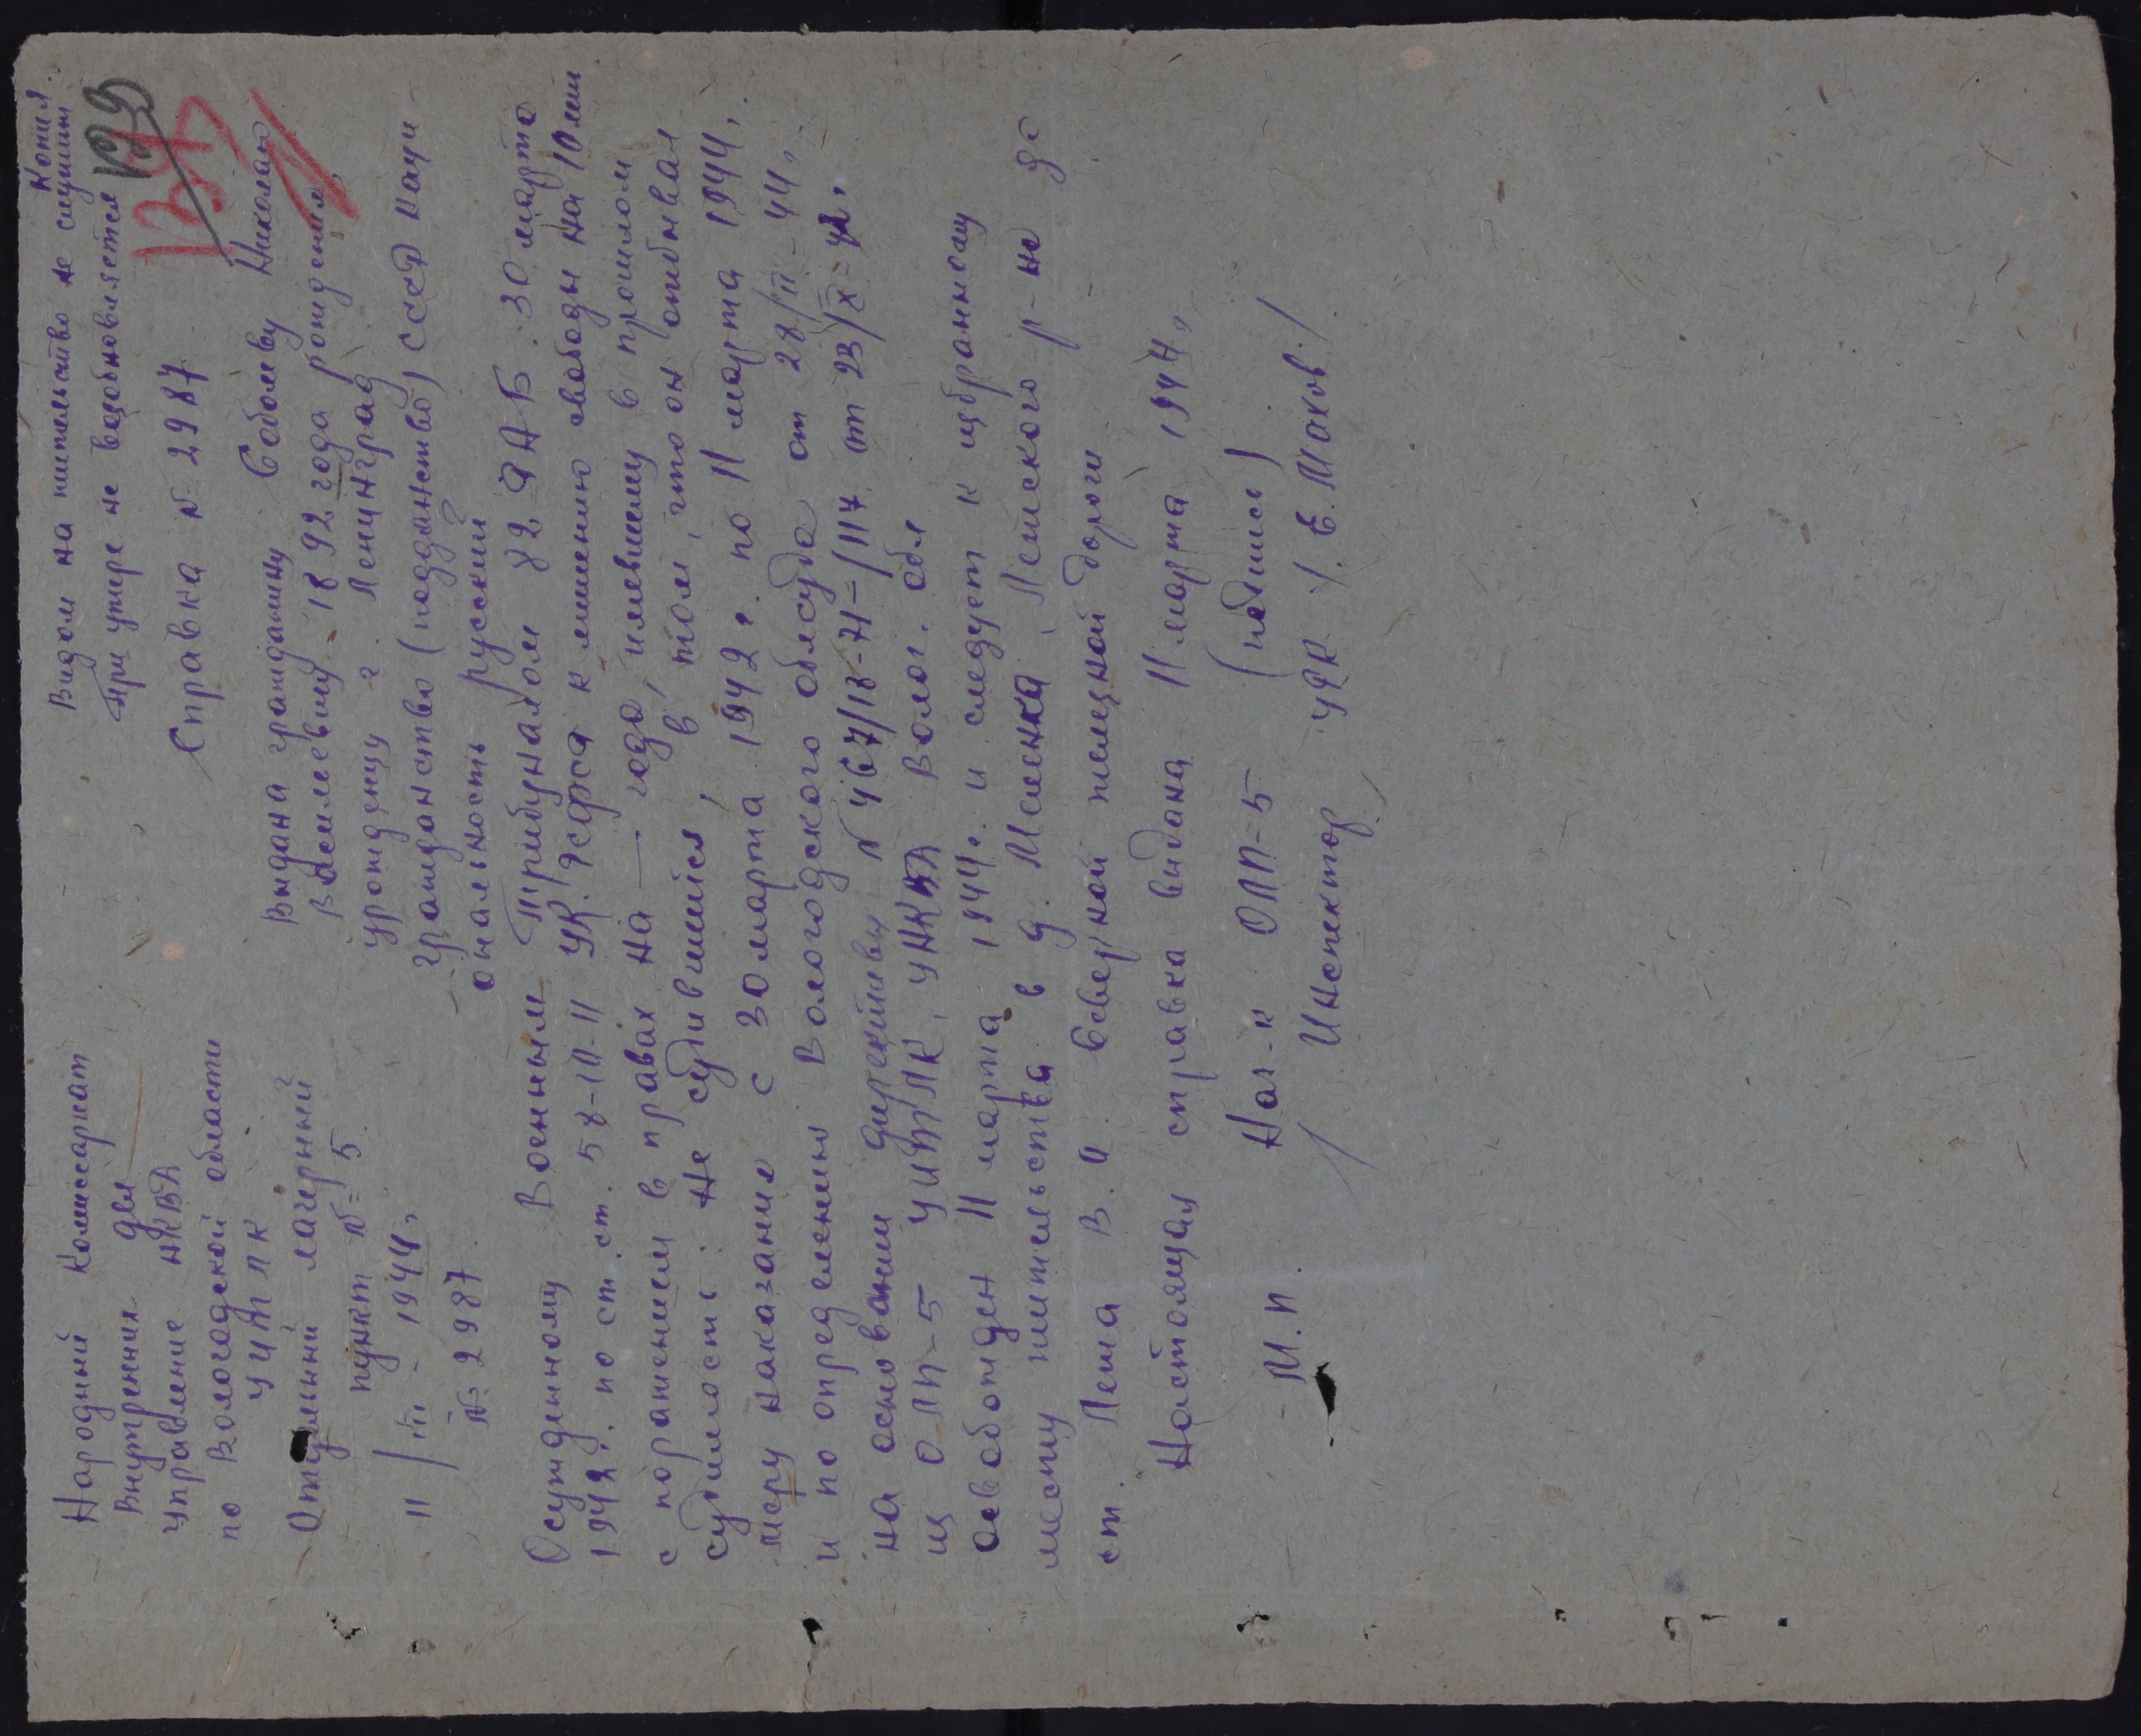 Копия.
Видом на жительство не служит
При утере не возобновляется
139
Народный Комиссариат
Внутренних дел
Управление НКВД
по Вологодской области
УИТЛК
Отдельный лагерный
пункт № 5.
11/III - 1944 г.
№ 2987
Справка № 2987
Выдана гражданину Соболеву Николаю
Васильевичу 1892 года рождения,
урожденцу г. Ленинград
гражданство (подданство) СССР наци-
ональность русский
Осужденному Военным Трибуналом 82 ДАБ. 30 марта
1942 г. по ст. ст. 58-10-11 УК. РСФСР к лишению свободы на 10 лет.
с поражением в правах на — года, имевшему в прошлом
судимость: не судившийся, в том, что он отбывал
меру наказания с 30 марта 1942 г. по 11 марта 1944 г.
и по определению Вологодского облсуда от 28/II - 44 г.
на основании директивы № 467/18-71=/117 от 23/X-42 г.
из ОЛП-5 УИТЛК, УНКВД Волог. обл
освобожден 11 марта 1944 г. и следует к избранному
месту жительства в д. Мишенка, Лежского р-на до
ст. Лежа В. О. Северной железной дороги
Настоящая справка выдана 11 марта 1944 г.
Нач-к ОЛП-5 (подпись)
М.П. Инспектор УРК /. Е. Моков./